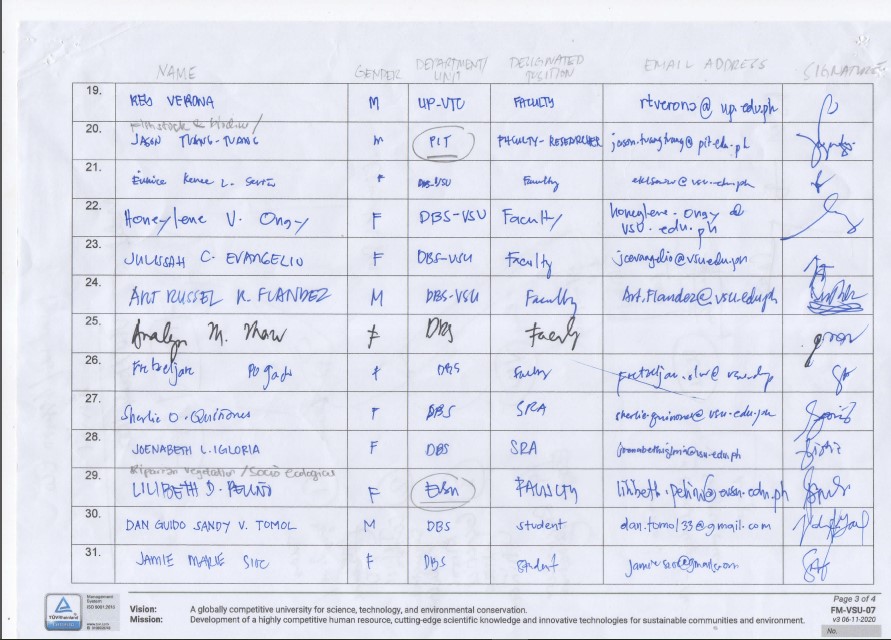 NAME GENDER DEPARTMENT/UNIT DESIGNATED POSITION EMAIL ADDRESS SIGNATURE
19. REY VERONA M UP-VTC FACULTY rtverona@up.edu.ph
20. JASON TUANG-TUANG M PIT FACULTY-RESEARCHER jason.tuangtuang@pit.edu.ph
21. Eunice Kenee L. F DBS-VSU Faculty
22. Honeylene V. Ongy F DBS-VSU Faculty honeylene.ongy@
vsu.edu.ph
23. JULISSAH C. EVANGELIO F DBS-VSU Faculty jcevangelio@vsu.edu.ph
24. ART RUSSEL R. FLANDEZ M DBS-VSU Faculty Art.Flandez@vsu.edu.ph
25. Analyn M. F DBS Faculty
26. F DBS Faculty
27. Sherlie O. Quiñones F DBS SRA sherlie.quinones@vsu.edu.ph
28. JOENABETH L. IGLORIA F DBS SRA
Riparian Vegetation / Socio Ecological
29. LILIBETH D. F FACULTY
30. DAN GUIDO SANDY V. TOMOL M DBS student dan.tomol33@gmail.com
31. JAMIE MARIE F DBS student
TÜVRheinland
CERTIFIED
Management
System
ISO 9001:2015
www.tuv.com
Vision: A globally competitive university for science, technology, and environmental conservation.
Mission: Development of a highly competitive human resource, cutting-edge scientific knowledge and innovative technologies for sustainable communities and environment.
Page 3 of 4
FM-VSU-07
v3 06-11-2020
No.